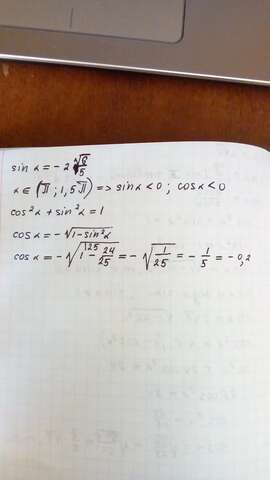 sin α = - 2 √6/5
α ∈ (π ; 1,5 π) => sin α < 0 ; cos α < 0
cos²α + sin²α = 1
cos α = - √1 - sin²α
cos α = - √1 - 24/25 = - √1/25 = - 1/5 = - 0,2